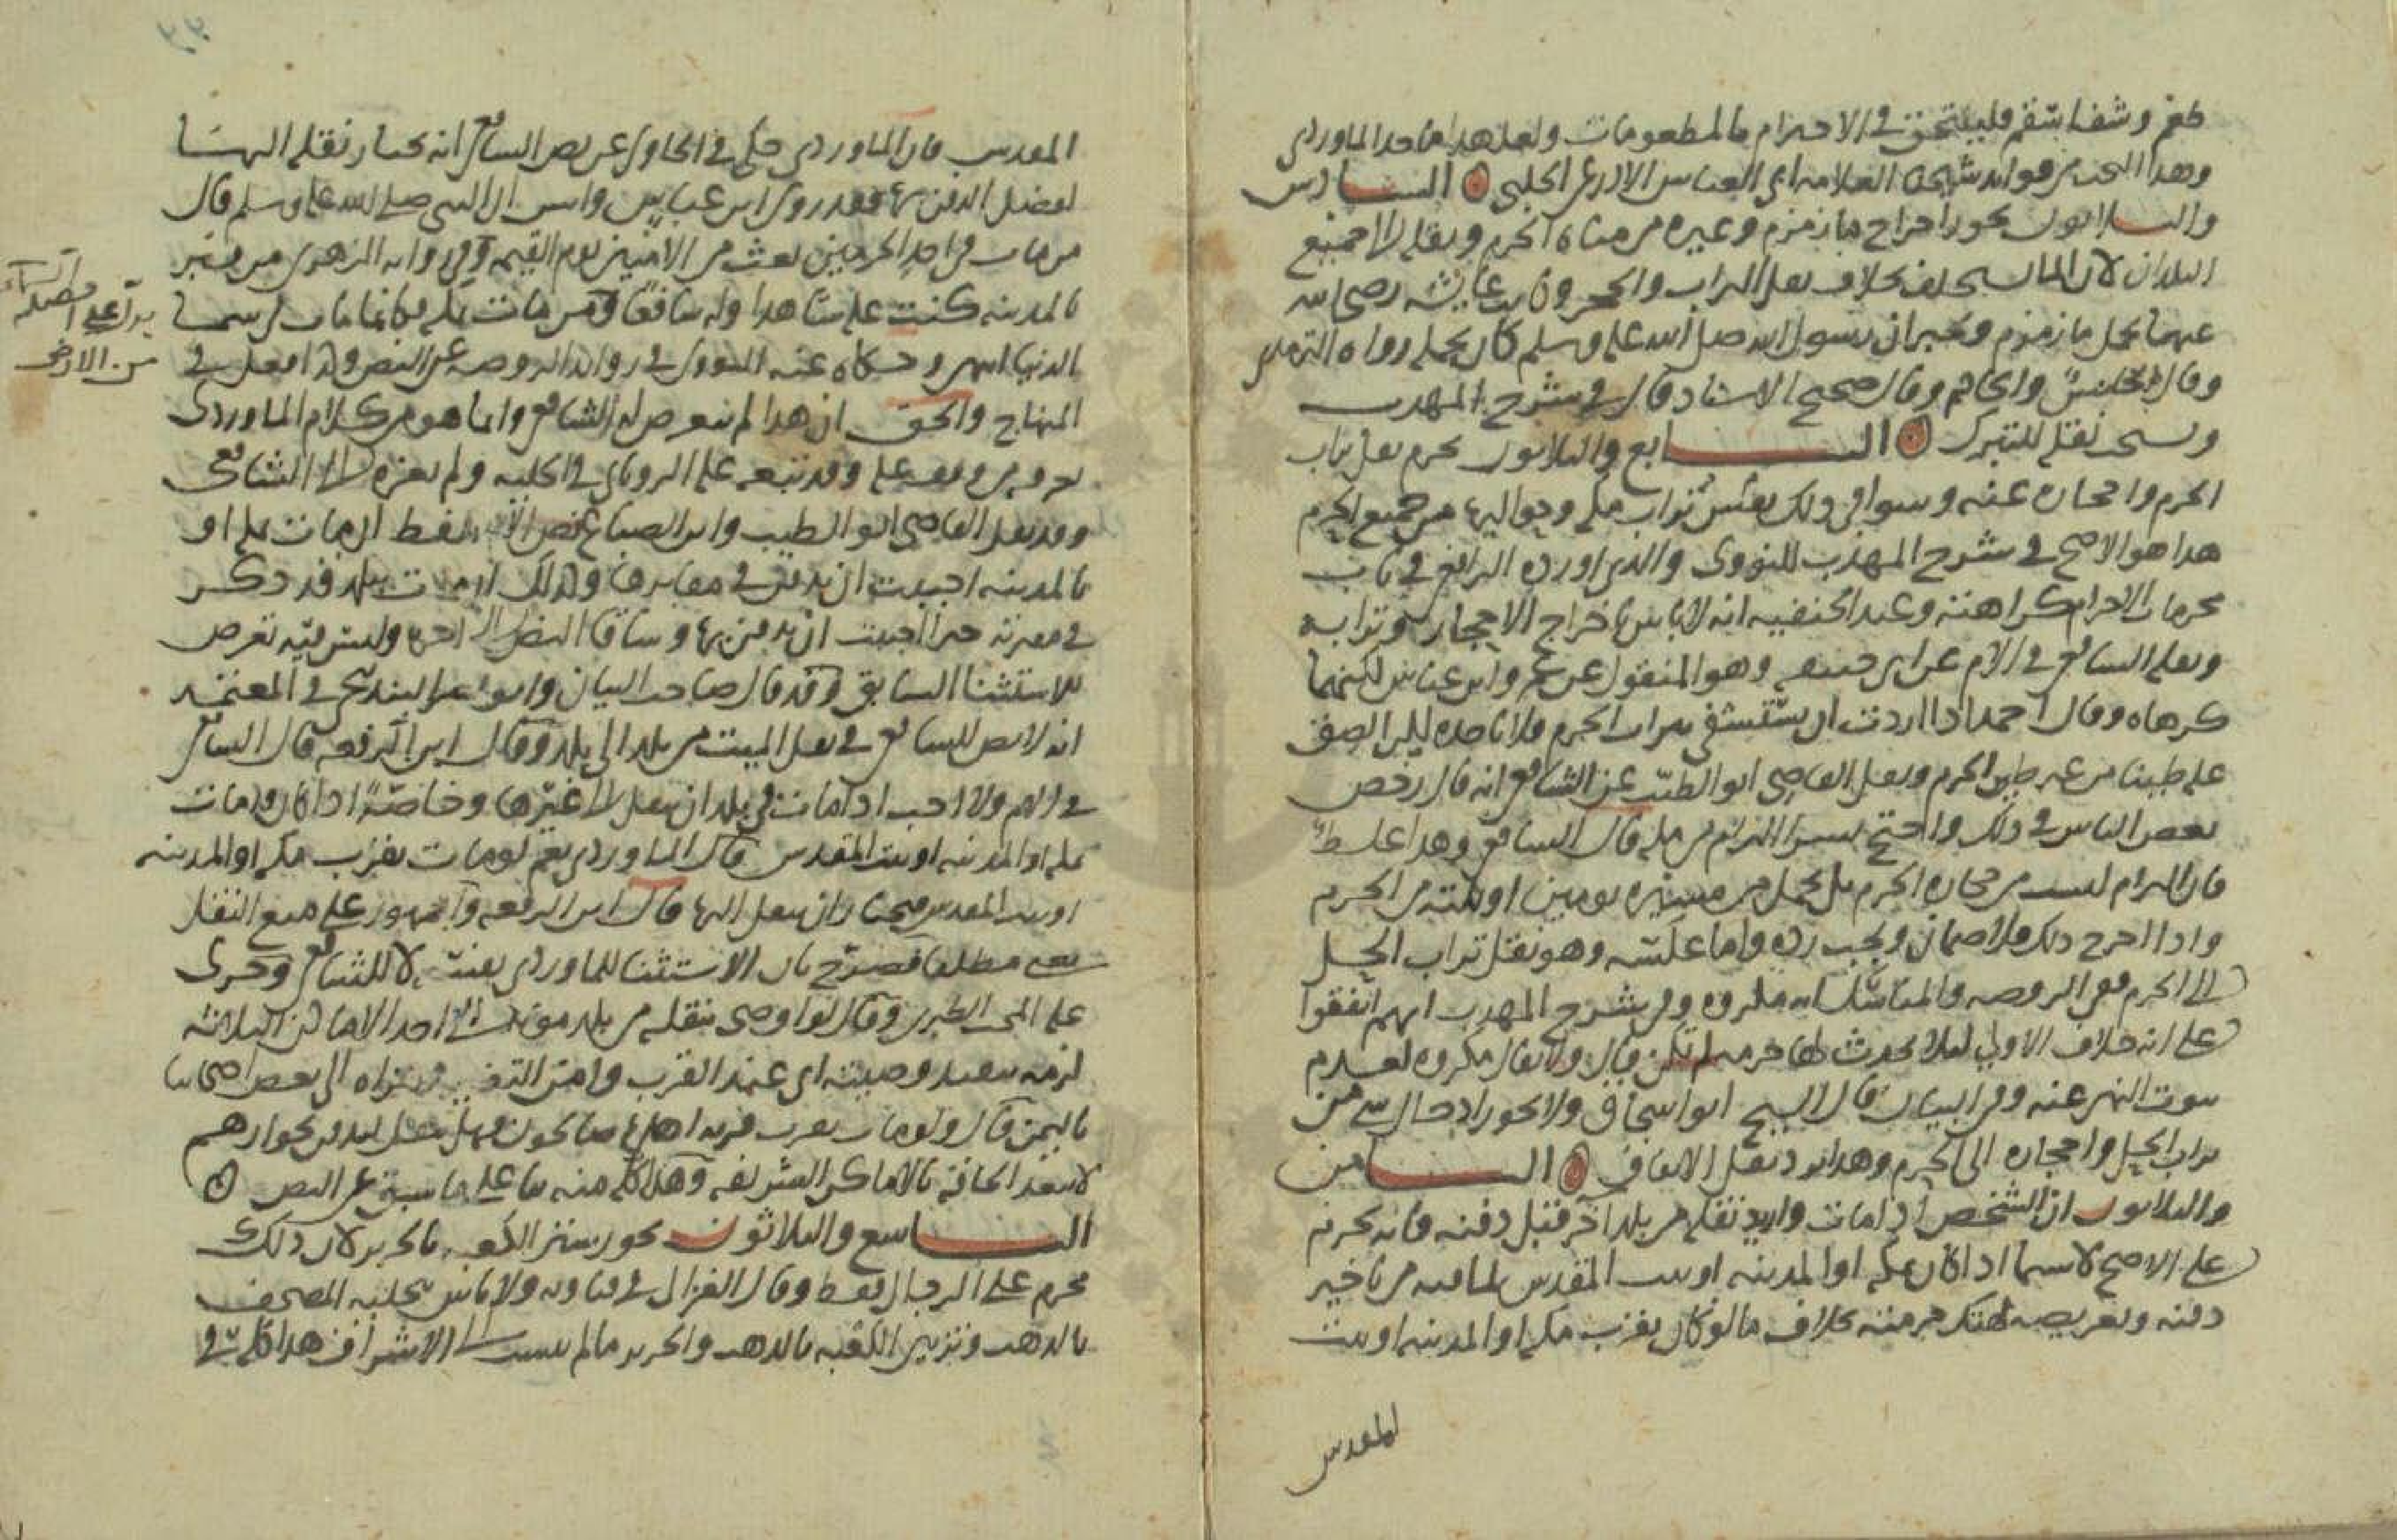 طعم وشفا سقم فليلتحق في الاحترام بالمطعومات ولعل هذا ماخذ الماوردي
وهذا البحث من فوايد شيخنا العلامه ابي العباس الاذرعي الحلبي السادس
والثلاثون يجوز اخراج ما زمزم وغيره من مياه الحرم ونقله الى جميع
البلدان لان الما يستخلف بخلاف نقل التراب والحجر وكانت عايشه رضي الله
عنها تحمل ما زمزم وتخبر ان رسول الله صلى الله عليه وسلم كان يحمله رواه الترمذي
وقال حسن والحاكم وقال صحيح الاسناد قال في شرح المهذب
ويستحب نقله للتبرك السابع والثلاثون يحرم نقل تراب
الحرم واحجاره عنه وسوا في ذلك نفس تراب مكه وحواليها من جميع الحرم
هذا هو الاصح في شرح المهذب للنووي والذي اورده الرافعي في باب
محرمات الاحرام كراهته وعند الحنفيه انه لا باس باخراج الاحجار وترابه
ونقله الشافعي في الام عن ابي حنيفه وهو المنقول عن عمر وابن عباس لكنهما
كرهاه وقال احمد اذا اردت ان تستشفي بتراب الحرم فلا تاخذه الصق
عليه طينا من غير طين الحرم ونقل القاضي ابو الطيب عن الشافعي انه قال رخص
بعض الناس في ذلك واحتج بشرا البرام من مكه قال الشافعي وهذا غلط
فان البرام ليست من حجاره الحرم بل تحمل من مسيره يومين او ثلثه من الحرم
واذا اخرج ذلك فلا ضمان ويجب رده واما عكسه وهو نقل تراب الحل
الى الحرم ففي الروضه والمناسك انه مكروه وفي شرح المهذب انهم اتفقوا
على انه خلاف الاولى ليلا يحدث لها حرمه لم تكن قال ولا يقال مكروه لعدم
ثبوت النهي عنه وفي البيان قال الشيخ ابو اسحاق ولا يجوز ادخال شي من
تراب الحل واحجاره الى الحرم وهذا يرد نقل الاتفاق الثامن
والثلاثون ان الشخص اذا مات واريد نقله من بلد اخر قبل دفنه فانه يحرم
على الاصح لاسيما اذا كان بمكه او المدينه او بيت المقدس لما فيه من تاخير
دفنه وتعريضه لهتك حرمته بخلاف ما لو كان بقرب مكه او المدينه او بيت
المقدس
المقدس فان الماوردي حكى في الحاوي عن نص الشافعي انه يختار نقله اليها
لفضل الدفن بها فقد روى ابن عباس وانس ان النبي صلى الله عليه وسلم قال
من مات في احد الحرمين بعث من الامنين يوم القيمه وفي روايه الزهري من قبر
بالمدينه كنت عليه شاهدا وله شافعا ومن مات بمكه فكانما مات في سما
الدنيا انتهى وحكاه عنه النووي في زوائد الروضه عن النص وكذا فعل في
المنهاج والحق ان هذا لم يتعرض له الشافعي وانما هو من كلام الماوردي
وقد تبعه عليه الروياني في الحليه ولم يعزه الى الشافعي
وقد نقل القاضي ابو الطيب وابن الصباغ نص بلفظ ان مات بمكه او
بالمدينه احببت ان يدفن في مقابرها وكذلك ان مات ببلد قد ذكر
في مقبرته خيرا احببت ان يدفن بها وساقا النص الى اخره وليس فيه تعرض
للاستثنا السابق وقد قال صاحب البيان وابو نصر البندنيجي في المعتمد
انه لا نص للشافعي في نقل الميت من بلد الى بلد وقال ابن الرفعه قال الشافعي
في الام ولا احب اذا مات في بلد ان ينقل الى غيرها وخاصة اذا كان قد مات
بمكه او المدينه او بيت المقدس قال الماوردي نعم لو مات بقرب مكه او المدينه
او بيت المقدس فيختار ان ينقل اليها قال ابن الرفعه والجمهور على منع النقل
مطلقا فصرح بان الاستثنا للماوردي نفسه لا للشافعي وجرى
عليه المحب الطبري وقال لو اوصى بنقله من بلد موته الى احد الاماكن الثلاثه
لزم تنفيذ وصيته اي عند القرب وامن التغير وعزاه الى بعض اصحابنا
باليمن قال ولو مات بقرب قريه اهلها صالحون فهل ينقل ليدفن بجوارهم
لا يبعد الحاقه بالاماكن الشريفه وهذا كله منه بنا على ما سبق عن النص
التاسع والثلاثون يجوز ستر الكعبه بالحرير لان ذلك
محرم على الرجال فقط وقال الغزالي في فتاويه ولا باس بتحليه المصحف
بالذهب وتزيين الكعبه بالذهب والحرير ما لم ينسب الى الاشراف هذا كله في
السما
من الارض